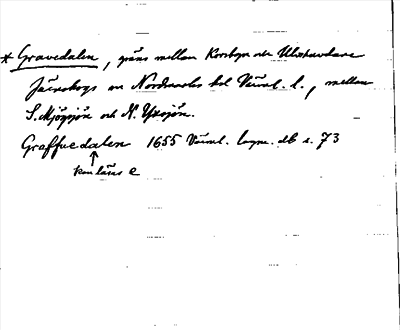 * Gravedalen, gräns mellan Korsbyn och
Järnskogs sn Nordmarks hd Värml. l., mellan
S. Mjögsjön och N. Yxsjön.
Graffuedalen 1655 Värml. lagm. db s. 73
kan läsas e